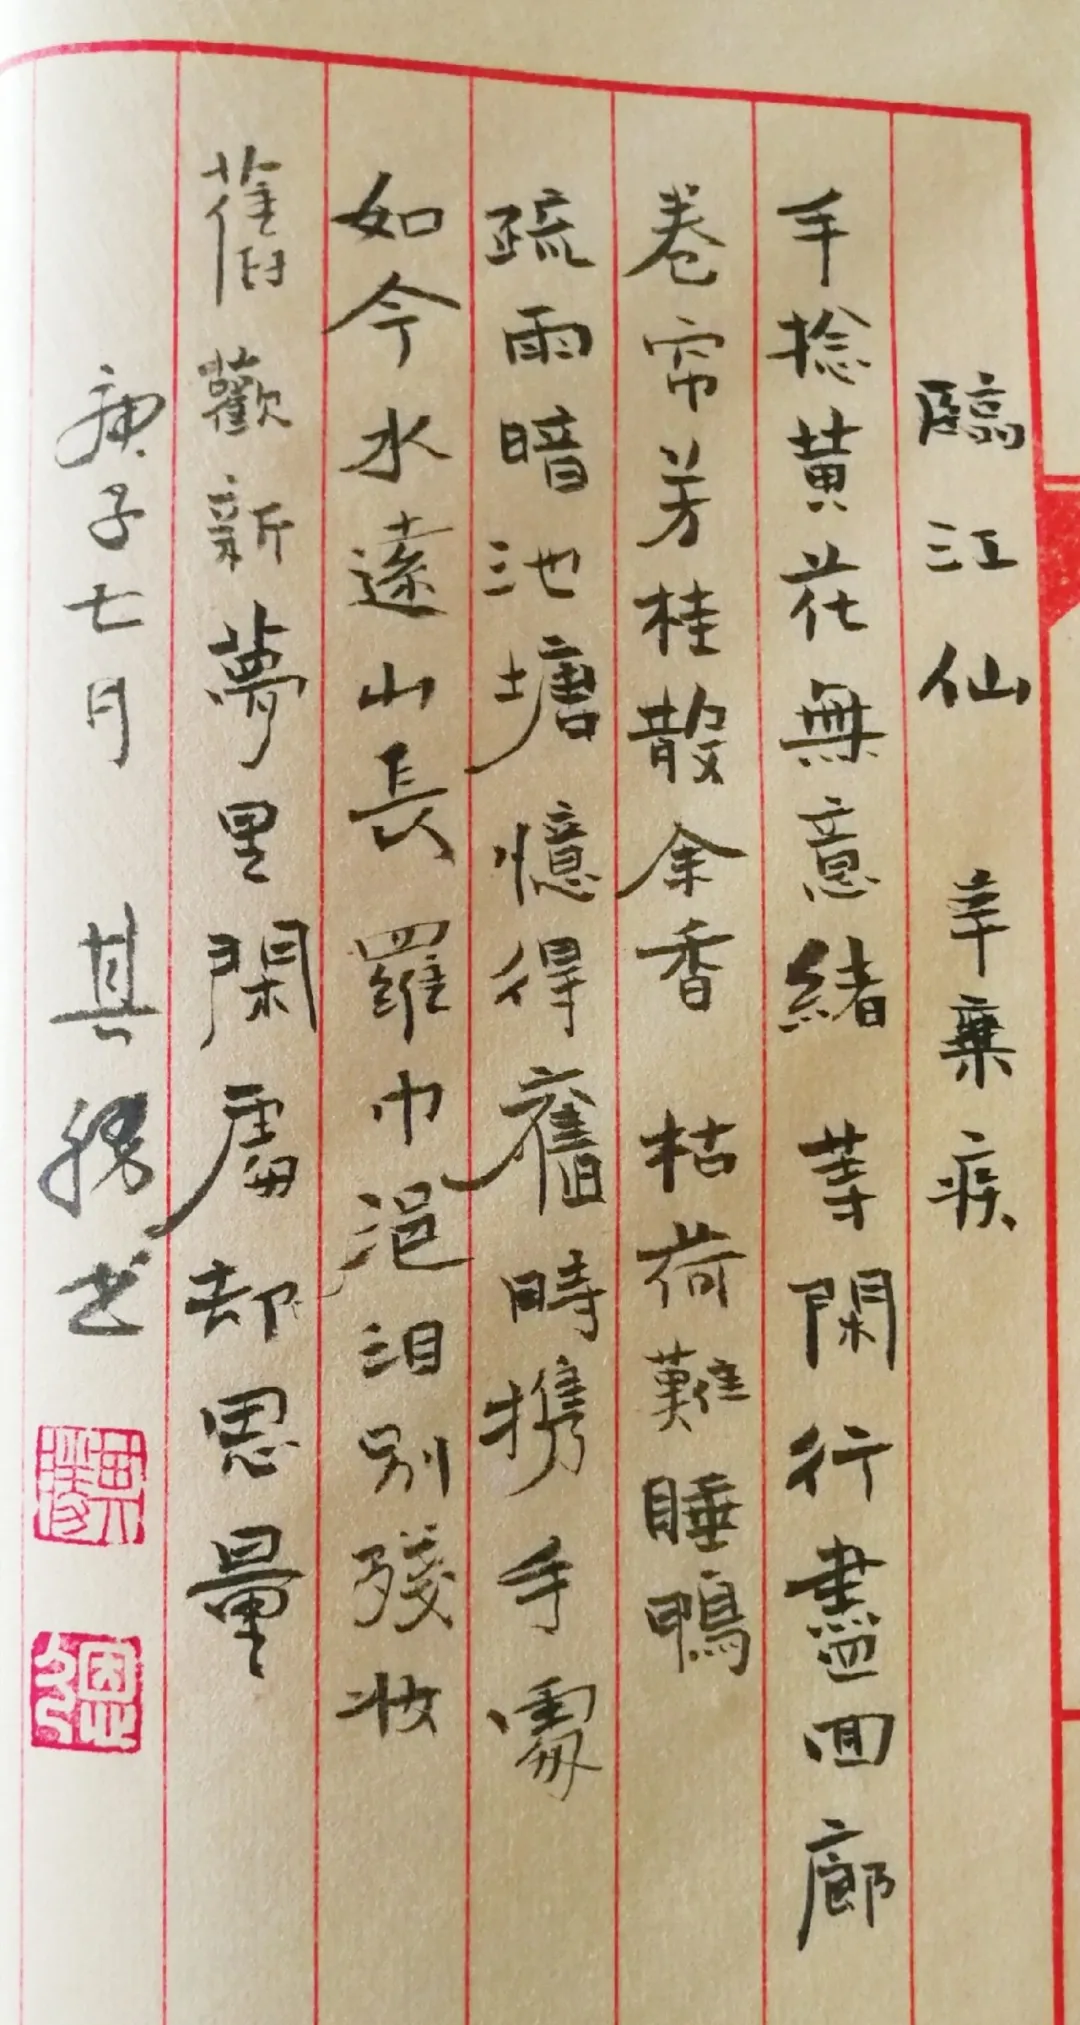 臨江仙 辛棄疾
手捻黃花無意緒 等閑行盡回廊
卷帘芳桂散余香 枯荷難睡鴨
疏雨暗池塘憶得舊時携手處
如今水遠山長羅巾浥泪别殘妝
舊歡新夢里閑處却思量
庚子七月 其 书